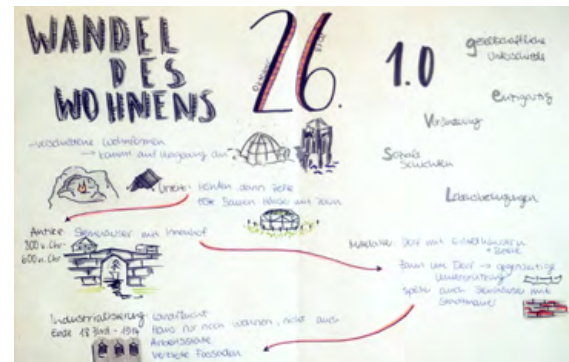 WANDEL
DES
WOHNENS
26.
1.0
gesellschaftliche
Unterschiede
einzigartig
Veränderung
Soziale
Schichten
Lebensbedingungen
- verschiedene Wohnformen
→ kommt auf Umgebung an
Urzeit: Höhlen dann Zelte
Bauern Häuser mit Zaun
Antike Steinhäuser mit Innenhof
800 v. Chr-
600 n. Chr
Mittelalter: Dorf mit Einzelhäusern
Zaun um Dorf → gegenseitige
Unterstützung
später auch Steinhäuser mit
Stadtmauer
Industrialisierung Landflucht
Ende 18 Jhd - 1914 Haus nur noch wohnen, nicht auch
Arbeitsstätte
verzierte Fassaden